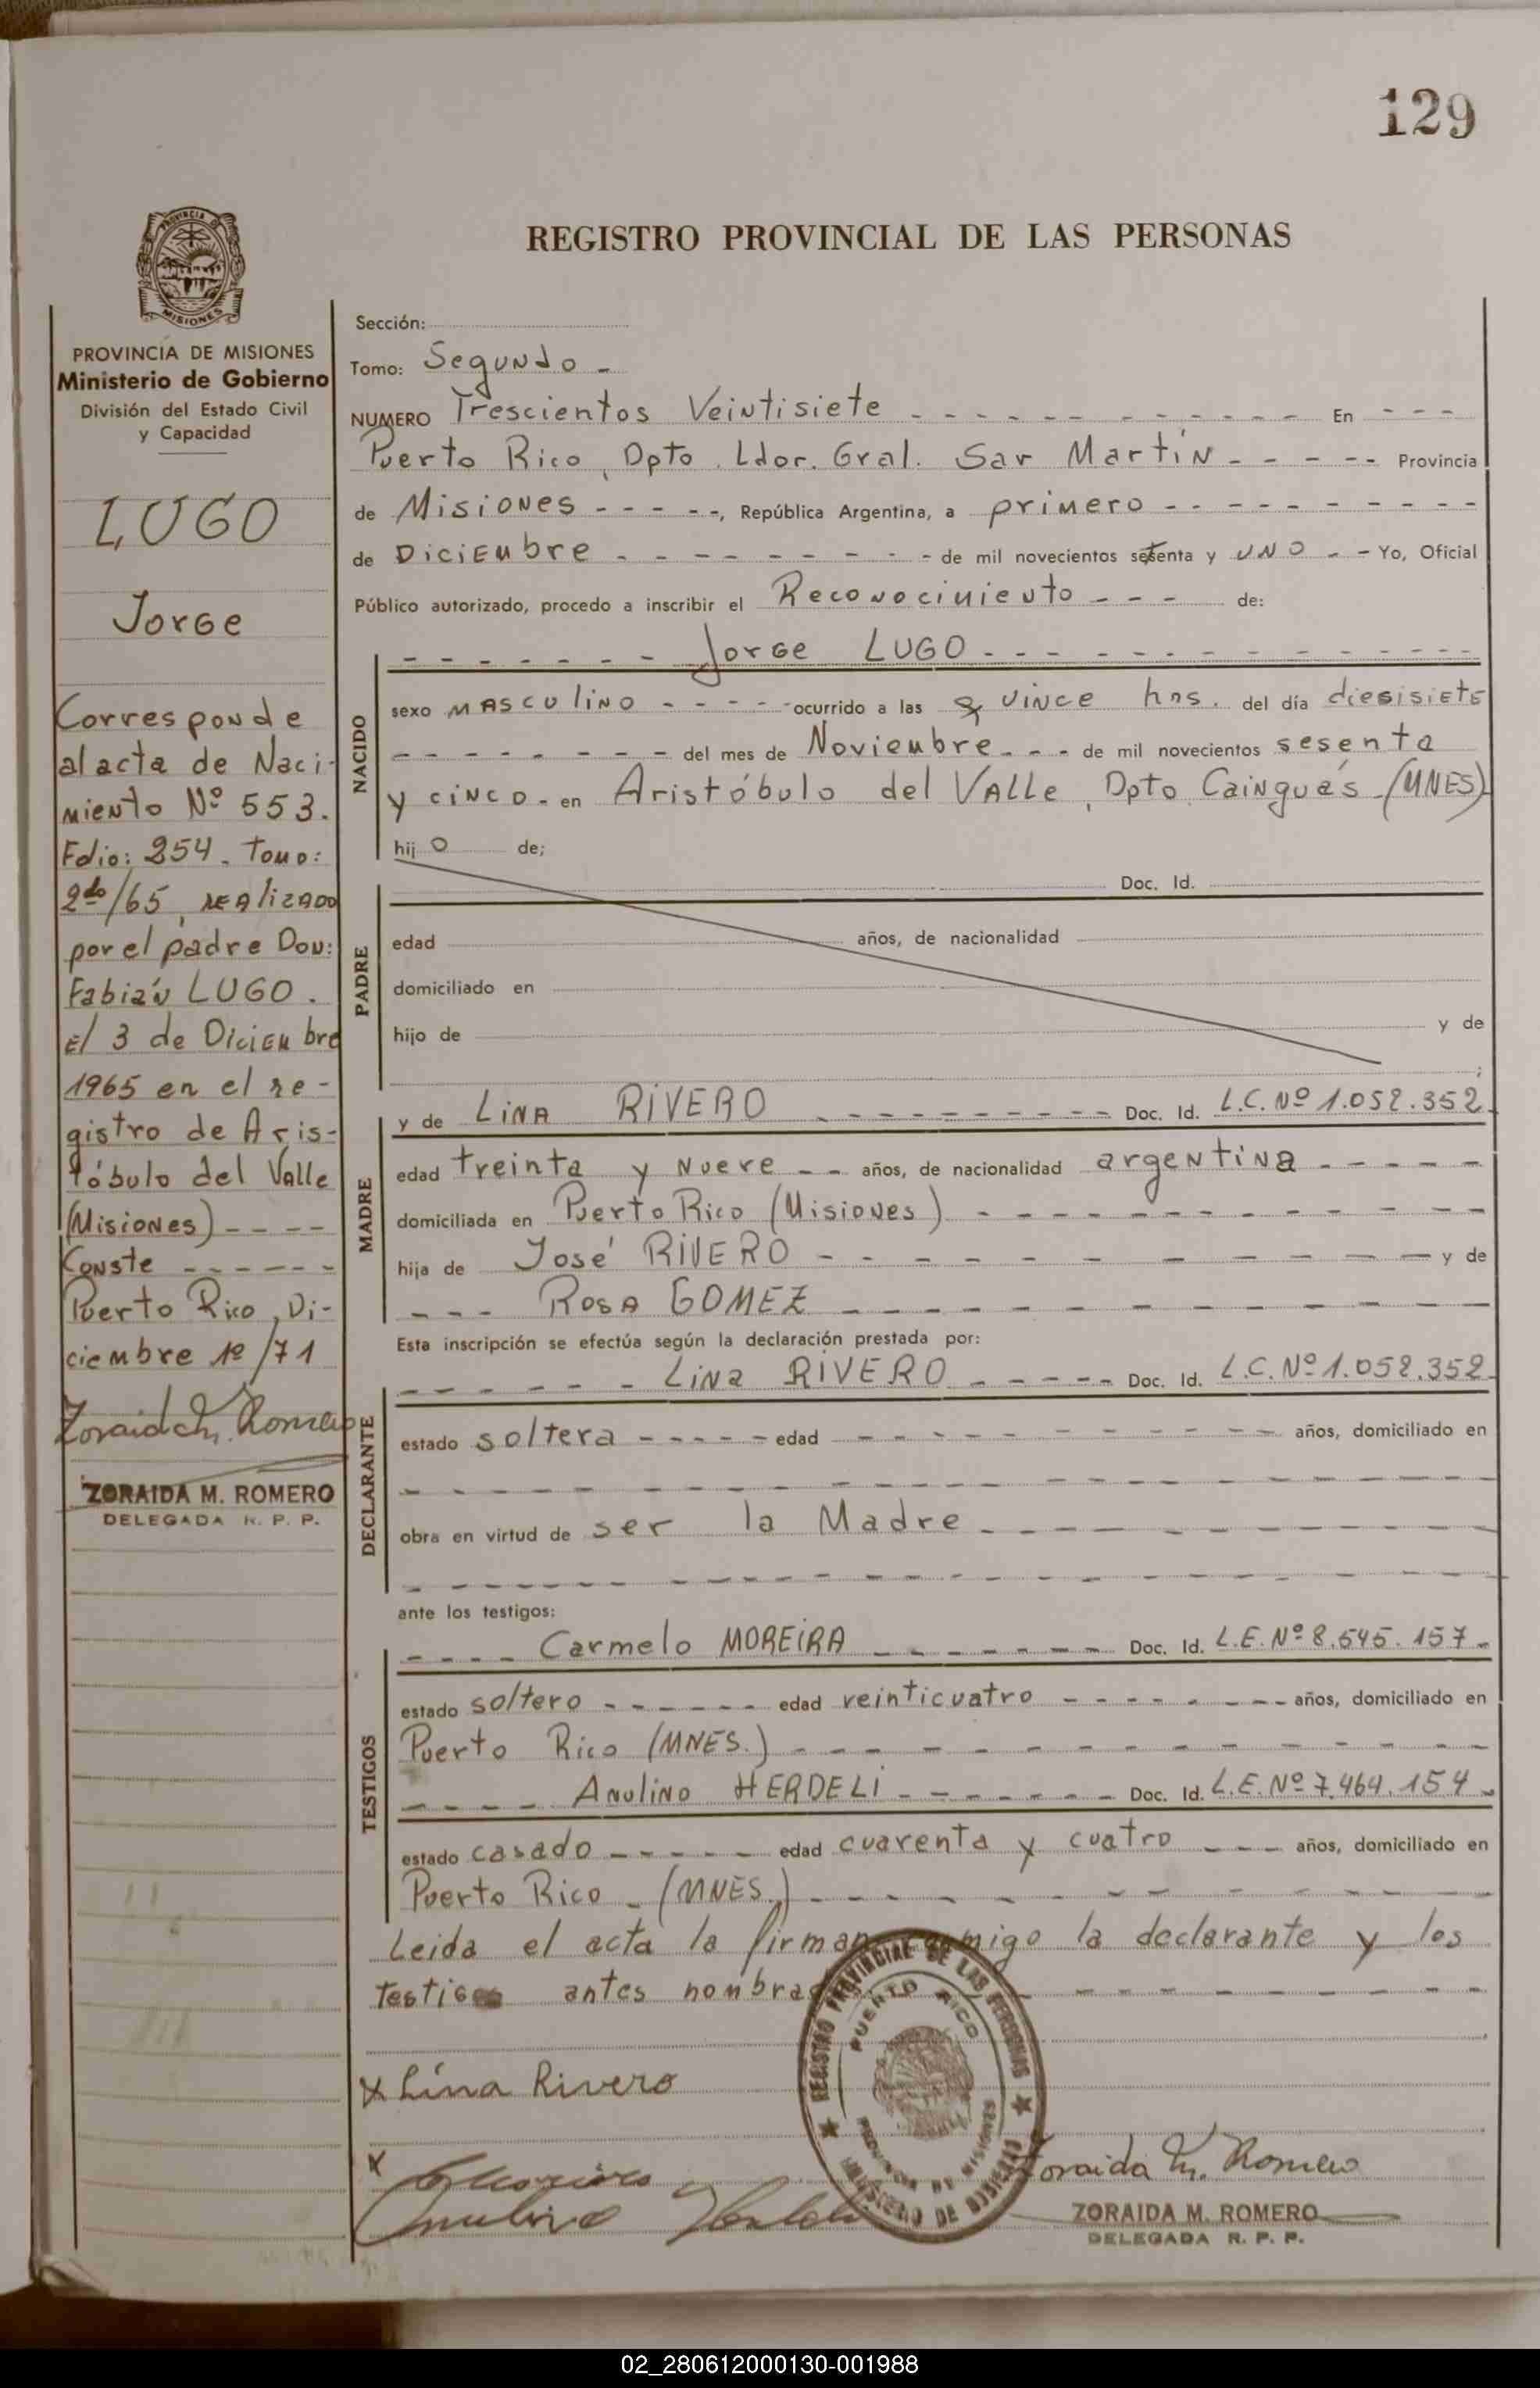 129
REGISTRO PROVINCIAL DE LAS PERSONAS
PROVINCIA DE MISIONES
PROVINCIA DE MISIONES
Ministerio de Gobierno
División del Estado Civil
y Capacidad
LUGO
Jorge
Corresponde
al acta de Naci-
miento Nº 553.
Folio: 254. Tomo:
2do/65, REALizADO
por el padre Don:
Fabián LUGO.
El 3 de Diciembre
1965 en el re-
gistro de Aris-
tóbulo del Valle
(Misiones) - - - -
Conste - - - - - -
Puerto Rico, Di-
ciembre 1º/71
Zoraida M. Romero
ZORAIDA M. ROMERO
DELEGADA R. P. P.
Sección:
Tomo: Segundo -
NUMERO Trescientos Veintisiete - - - - - - - - - - - - En - - -
Puerto Rico, Dpto. Ldor. Gral. San Martín - - - - - Provincia
de Misiones - - - - -, República Argentina, a primero - - - - - - - - -
de Diciembre - - - - - - - - - de mil novecientos setenta y UNO - - Yo, Oficial
Público autorizado, procedo a inscribir el Reconocimiento - - - de:
NACIDO
- - - - - - - Jorge LUGO - - - - - - - - - - - -
sexo MASCULINO - - - - ocurrido a las quince hns. del día diesisiete
- - - - - - - - del mes de Noviembre - - - de mil novecientos sesenta
y CINCO - en Aristóbulo del VAlle, Dpto Cainguás (MNES)
hij o de;
PADRE
Doc. Id.
edad años, de nacionalidad
domiciliado en
hijo de y de
;
MADRE
y de LiNA RiVERO - - - - - - - - - Doc. Id. L.C. Nº 1.052.352.
edad treinta y Nueve - - años, de nacionalidad argentina - - - - -
domiciliada en Puerto Rico (Misiones) - - - - - - - - - - -
hija de José RiVERO - - - - - - - - - - - y de
- - - RosA GOMEZ - - - - - - - - - - - -
Esta inscripción se efectúa según la declaración prestada por:
DECLARANTE
- - - - - - Lina RiVERO - - - - - Doc. Id. L.C. Nº 1.052.352.
estado soltera - - - - - edad - - - - - - - - - - años, domiciliado en
- - - - - - - - - - - - - - - - - - - -
obra en virtud de ser la Madre - - - - - - - - - -
- - - - - - - - - - - - - - - - - - - -
ante los testigos:
TESTIGOS
- - - - Carmelo MOREiRA - - - - - - Doc. Id. L.E. Nº 8.545.157 -
estado soltero - - - - - - edad veinticuatro - - - - - - - - años, domiciliado en
Puerto Rico (MNES.) - - - - - - - - - - - - -
- - - - Anulino HERDELi - - - - - - Doc. Id. L.E. Nº 7.464.154 -
estado casado - - - - - edad cuarenta y cuatro - - - años, domiciliado en
Puerto Rico - (MNES.) - - - - - - - - - - - -
Leida el acta la firman conmigo la declarante y los
testigos antes - - - - - - - -
REGISTRO PROVINCIAL DE LAS PERSONAS
PUERTO RICO
PROVINCIA DE MISIONES
MINISTERIO DE GOBIERNO
x Lina Rivero
x
Zoraida M. Romero
ZORAIDA M. ROMERO
DELEGADA R. P. P.
02_280612000130-001988